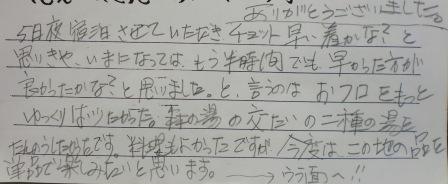 ありがとうございました。
今日夜宿泊させていただきチョット早い着かな?と
思いきや、いまになっては、もう半時間でも早かった方が
良かったかな?と思いました。と、言うのはおフロをもっと
ゆっくりはいりたかった。森の湯の交たいの二種の湯を
たんのうしたからです。料理もよかったですが今度はこの地の品を
単品で楽しみたいと思います。→うら面へ!!